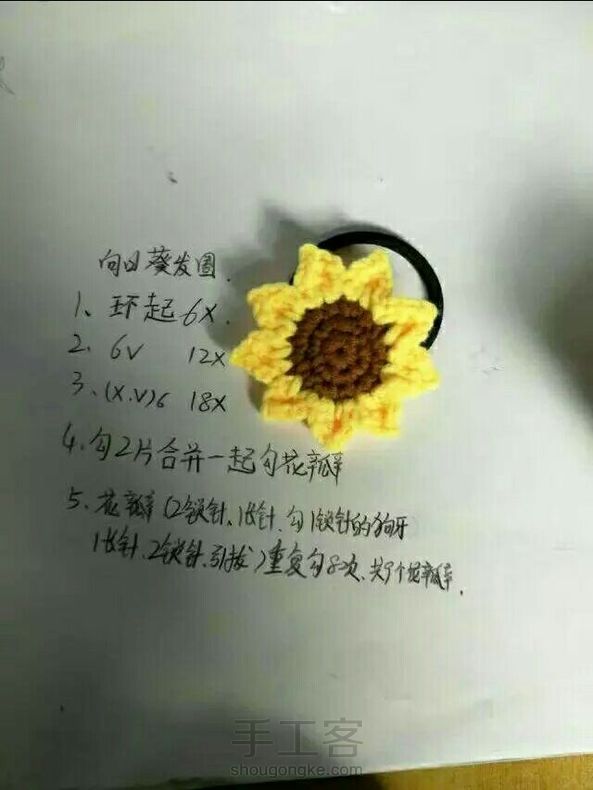 向日葵发圈.
1、环起6X.
2、6V 12X
3、(X.V)6 18X
4、勾2片合并一起勾花瓣
5、花瓣(2锁针、1长针、勾1锁针的狗牙
1长针、2锁针、引拔)重复勾8次、共9个花瓣.
手工客
shougongke.com